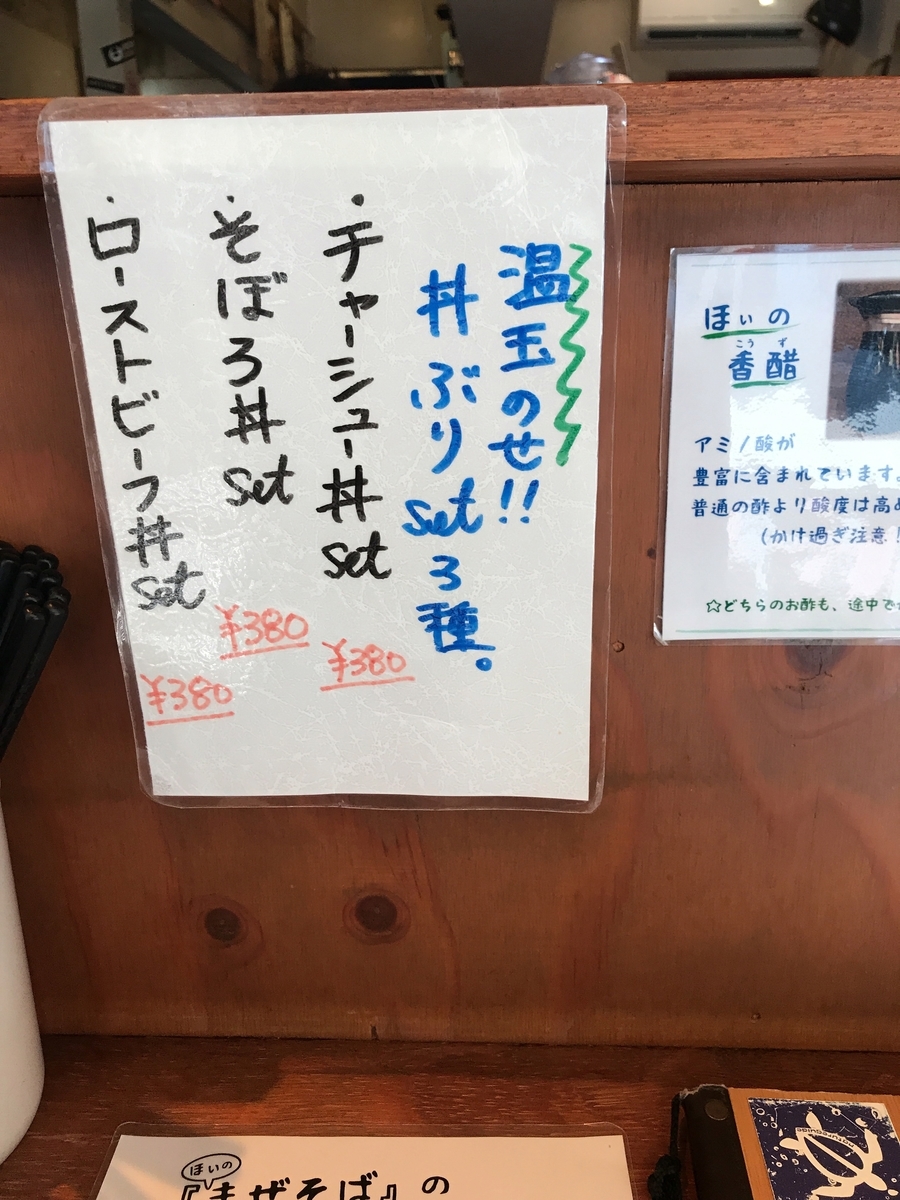 温玉のせ!!
丼ぶりset3種。
・チャーシュー丼set
¥380
・そぼろ丼set
¥380
・ローストビーフ丼set
¥380
ほぃの
こうず
香醋
アミノ酸が
豊富に含まれています。
普通の酢より酸度は高め
(かけ過ぎ注意!
☆どちらのお酢も、途中で
ほいの
『まぜそば』の